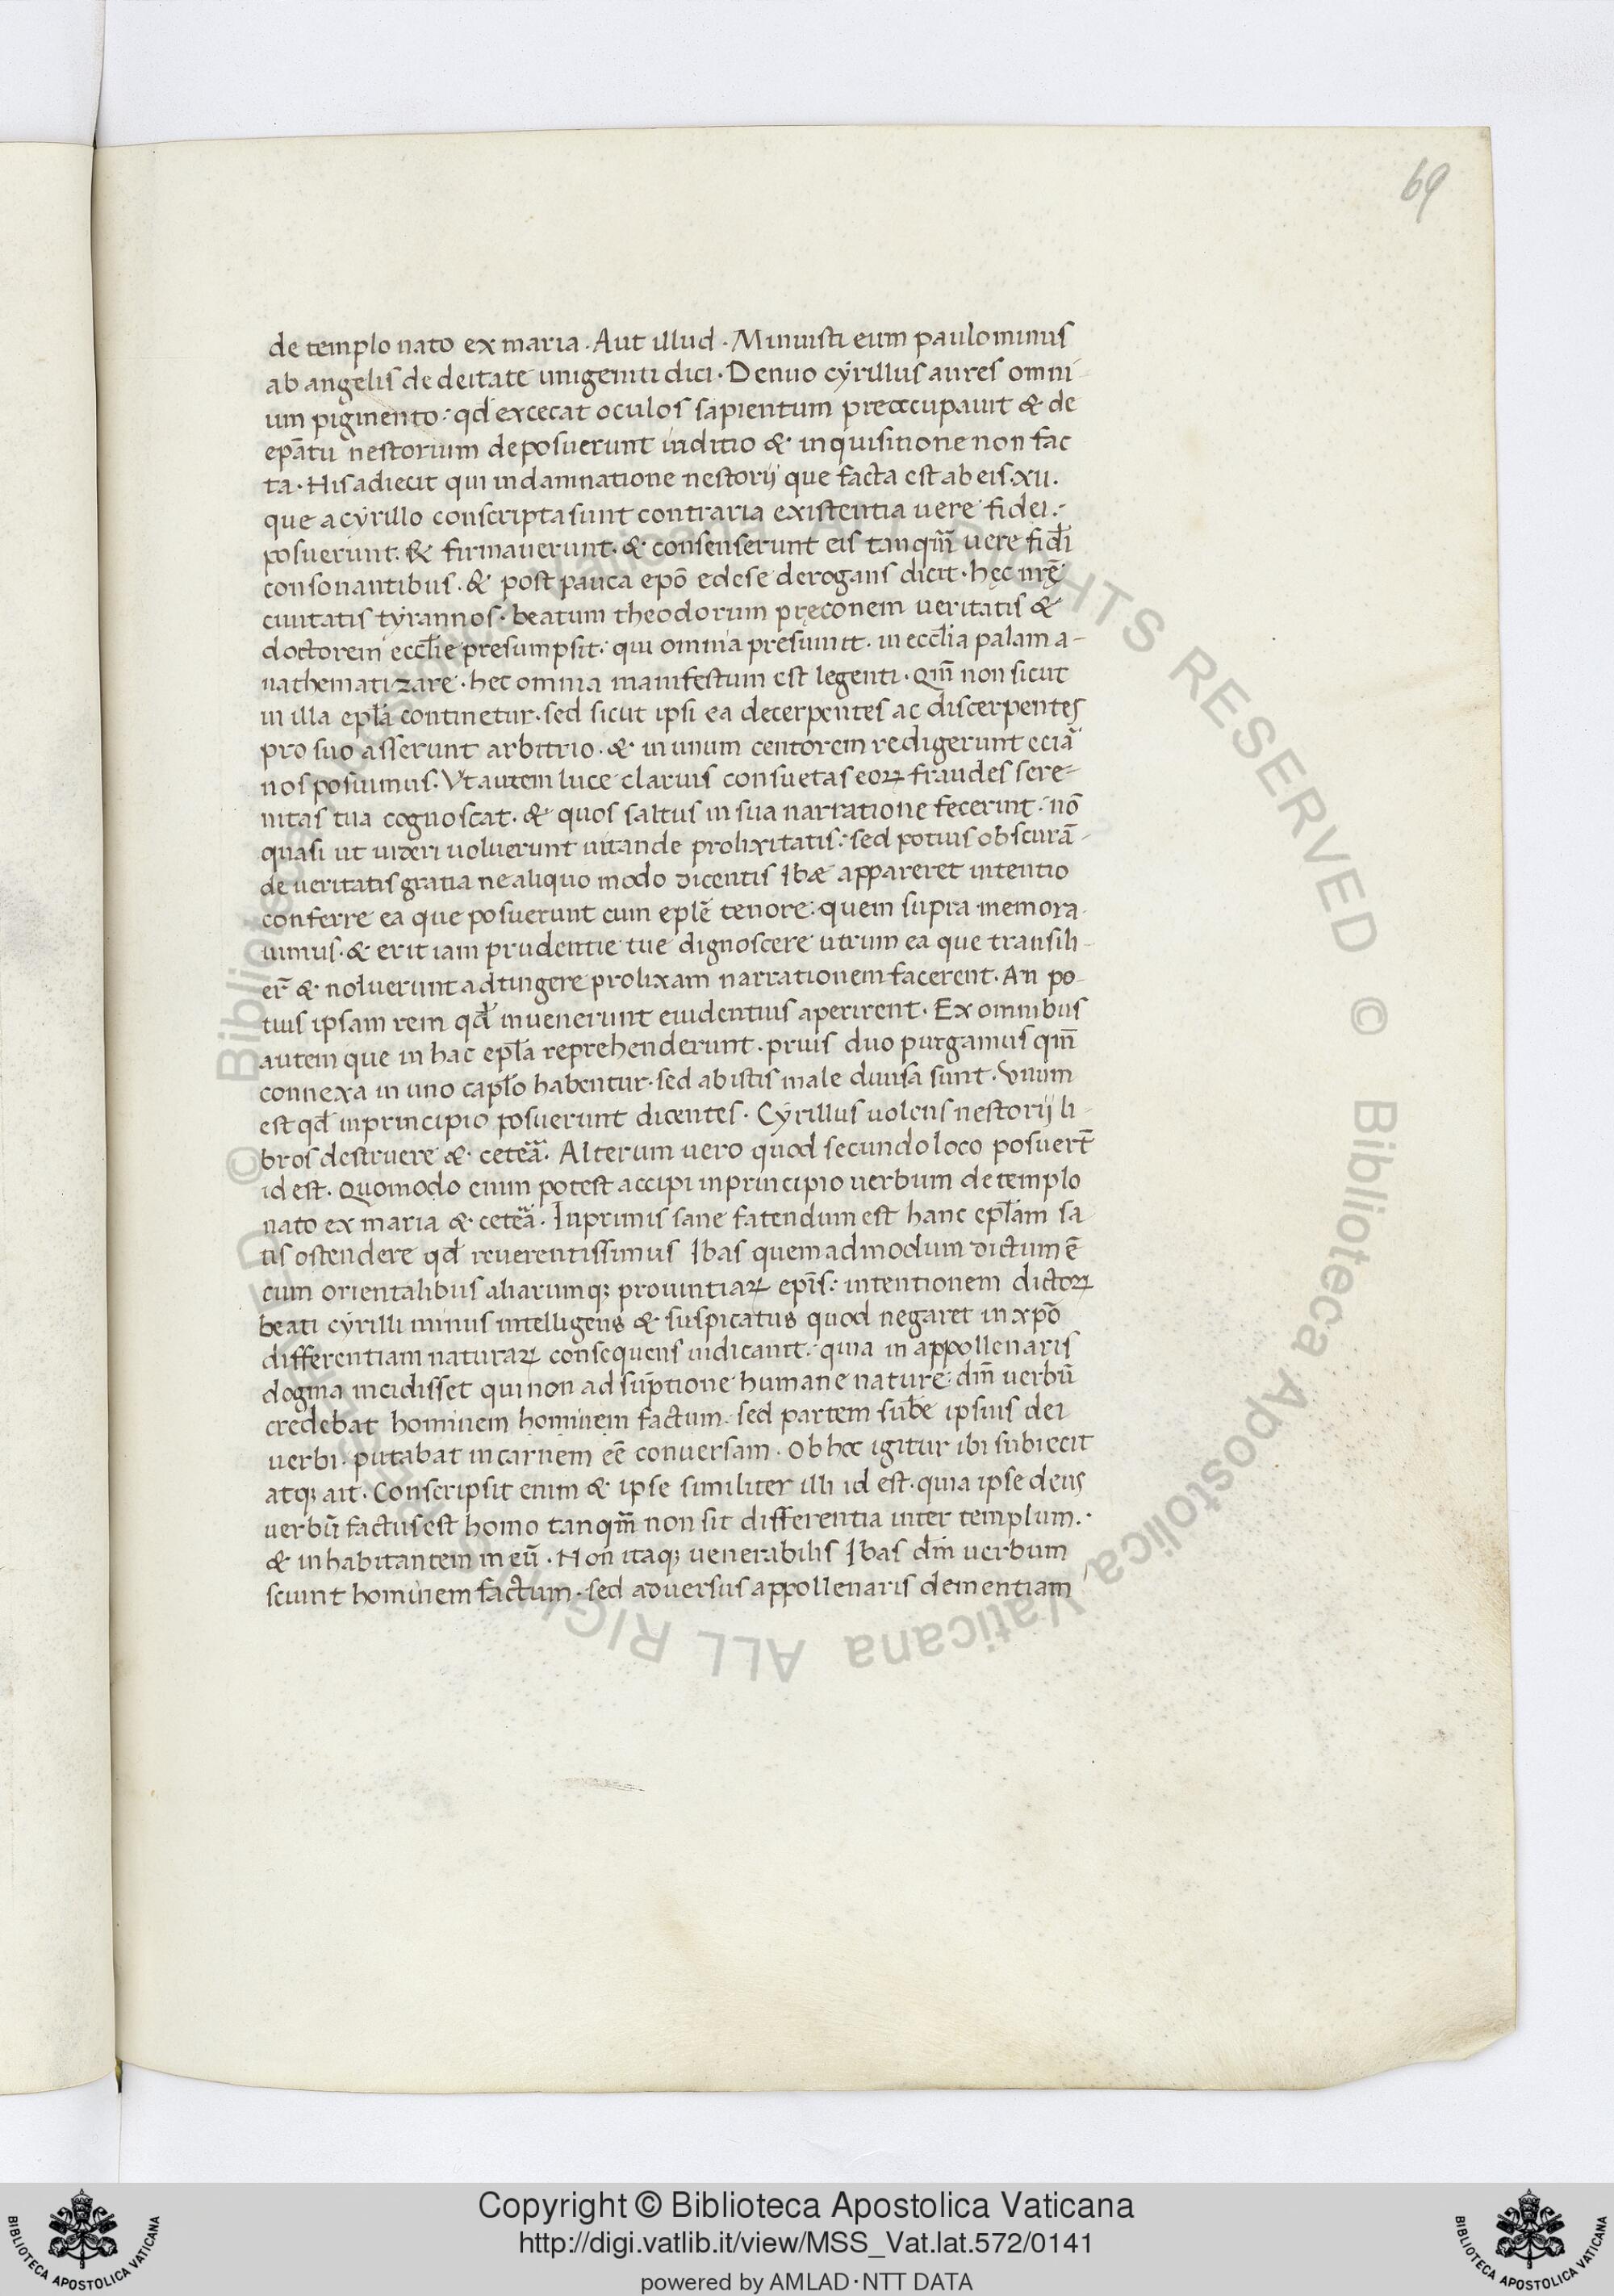 69
de templo nato ex maria. Aut illud. Minuisti eum paulominus
ab angelis de deitate unigeniti dici. Denuo cyrillus aures omni-
um pigmento: qđ excecat oculos sapientum preoccupauit & de
epātu nestorium deposuerunt iuditio & inquisitione non fac
ta. His adiecit qui in damnatione nestorij que facta est ab eis. xii.
que a cyrillo conscripta sunt contraria existentia uere fidei.
posuerunt. & firmauerunt. & consenserunt eis tanqm̄ uere fidi̅
consonantibus. & post pauca epō edese derogans dicit. hęc nrę̄
ciuitatis tyrannos. beatum theodorum pręconem ueritatis &
doctorem eccl̄ie presumpsit: qui omnia presumit. in eccl̄ia palam a-
nathematizare. hec omnia manifestum est legenti. qm̄ non sicut
in illa epl̄a continetur. sed sicut ipsi ea decerpentes ac discerpentes
pro suo asserunt arbitrio. & in unum centorem redigerunt eciā
nos posuimus. Vt autem luce clarius consuetas eoꝝ fraudes sere-
nitas tua cognoscat. & quos saltus in sua narratione fecerint: nō
quasi ut uideri uoluerunt uitande prolixitatis: sed potius obscurā-
de ueritatis gratia ne aliquo modo dicentis Ibæ appareret intentio
conferre ea que posuerunt cum epl̄e tenore: quem supra memora-
uimus. & erit iam prudentie tue dignoscere utrum ea que transili-
er̄ & noluerunt adtingere prolixam narrationem facerent. An po-
tius ipsam rem qđ inuenerunt euidentius aperirent. Ex omnibus
autem que in hac epl̄a reprehenderunt. prius duo purgamus qm̄
connexa in uno capl̄o habentur. sed ab istis male diuisa sunt. Vnum
est qđ in principio posuerunt dicentes. Cyrillus uolens nestorij li-
bros destruere & ceteā. Alterum uero quod secundo loco posuert̄
id est. Quomodo enim potest accipi in principio uerbum de templo
nato ex maria & ceteā. Inprimis sane fatendum est hanc epl̄am sa
tis ostendere qđ reuerentissimus Ibas quemadmodum dictum ē
cum orientalibus aliarumqꝫ prouintiaꝝ epīs: intentionem dictoꝝ
beati cyrilli minus intelligens & suspicatus quod negaret in xp̄o
differentiam naturaꝝ consequens iudicauit: quia in appollenaris
dogma incidisset qui non adsūptione humane nature: dm̄ uerbū
credebat hominem hominem factum. sed partem sub̄e ipsius dei
uerbi. putabat in carnem eē conuersam. Ob hoc igitur ibi subiecit
atqꝫ ait. Conscripsit enim & ipse similiter illi id est. quia ipse deus
uerbū factus est homo tanqm̄ non sit differentia inter templum.
& inhabitantem in eū. Non itaqꝫ uenerabilis Ibas dm̄ uerbum
sciunt hominem factum. sed aduersus appollenaris dementiam
© Biblioteca Apostolica Vaticana ALL RIGHTS RESERVED © Biblioteca Apostolica Vaticana ALL RIGHTS RESERVED
Copyright © Biblioteca Apostolica Vaticana
http://digi.vatlib.it/view/MSS_Vat.lat.572/0141
powered by AMLAD·NTT DATA
BIBLIOTECA APOSTOLICA VATICANA
BIBLIOTECA APOSTOLICA VATICANA